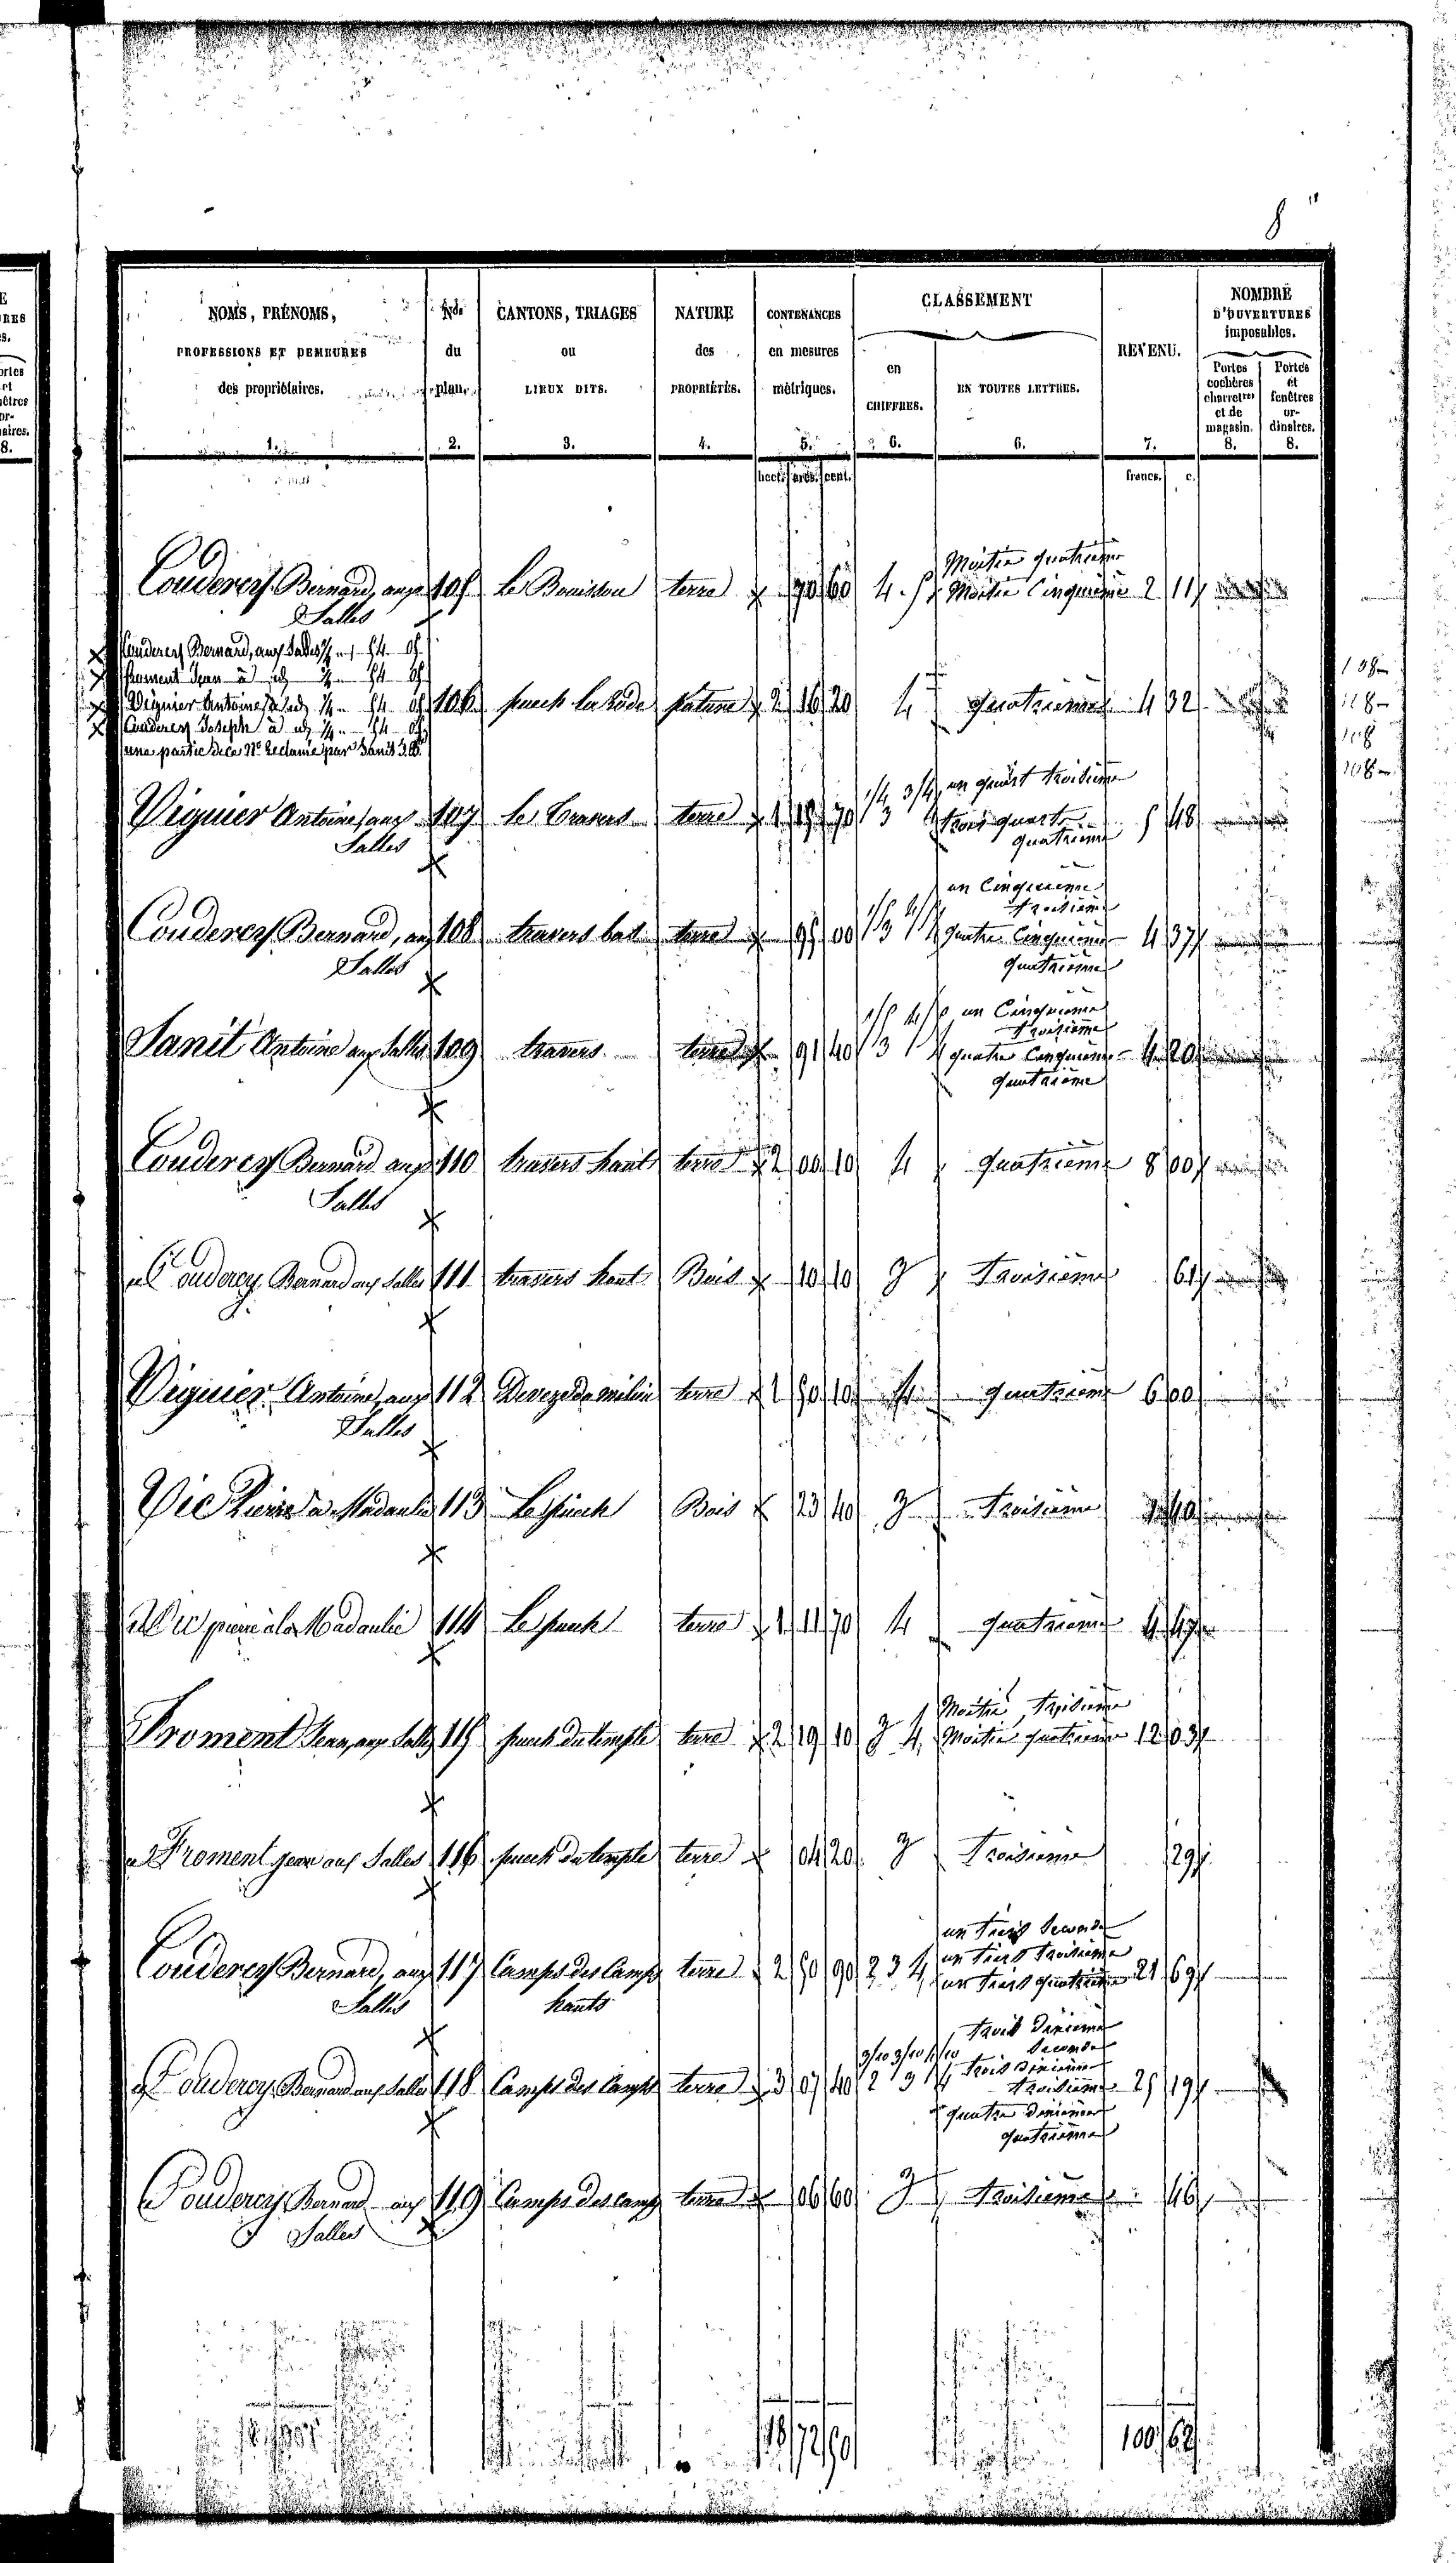 8
NOMS, PRÉNOMS, PROFESSIONS ET DEMEURES des propriétaires. 1.
Nos du plan. 2.
CANTONS, TRIAGES ou LIEUX DITS. 3.
NATURE des PROPRIÉTÉS. 4.
CONTENANCES en mesures métriques. 5.
CLASSEMENT
en CHIFFRES. 6.
EN TOUTES LETTRES. 6.
REVENU. 7.
NOMBRE D'OUVERTURES imposables.
Portes cochères charretres et de magasin. 8.
Portes et fenêtres ordinaires. 8.
hect. ares. cent.
francs. c.
Moitié quatrieme
Coudercy Bernard, aux 105 Le Bouisson terre 70 60 4. 5 Moitié Cinquième 2 11
Salles
Coudercy Bernard, aux Salles 1/4 54 05
Froment Jean à id 1/4 54 05
Viguier Antoine à id 1/4 54 05 106 puech la rode pature 2 16 20 4 quatrieme 4 32
Coudercy Joseph à id 1/4 54 05
une partie de ce No réclamé par Sanit
1/4 3/4 un quart troisième
Viguier Antoine, aux 107 le travers terre 1 19 70 3 4 trois quarts 5 48
Salles quatrieme
un Cinquieme
1/5 4/5 troisieme
Coudercy Bernard, aux 108 travers bas terre 95 00 3 4 quatre Cinquieme 4 37
Salles quatrieme
1/5 4/5 un Cinquieme
troisieme
Sanit Antoine aux Salles 109 travers terre 91 40 3 4 quatre Cinquieme 4 20
quatrieme
Coudercy Bernard aux 110 travers haut terre 2 00 10 4 quatrieme 8 00
Salles
Coudercy Bernard aux Salles 111 travers haut Bois 10 10 3 Troisieme 61
Viguier Antoine, aux 112 terre 1 50 10 4 quatrieme 6 00
Salles
Vic Pierre à la Madaulie 113 Le puech Bois 23 40 3 Troisieme 1 40
Vic pierre à la Madaulie 114 Le puech terre 1 11 70 4 quatrieme 4 47
Moitié Troisieme
Froment Jean, aux Salles 115 puech du temple terre 2 19 10 3 4 Moitié quatrieme 12 03
Froment jean aux Salles 116 puech du temple terre 04 20 3 Troisieme 29
un tiers Seconde
un tiers troisieme
Coudercy Bernard, aux 117 Camps des Camps terre 2 50 90 2 3 4 un tiers quatrieme 21 69
Salles hauts
trois dixieme
3/10 3/10 4/10 Seconde
trois dixieme
Coudercy Bernard aux Salles 118 Camps des Camps terre 3 07 40 2 3 4 troisieme 25 19
quatre dixieme
quatrieme
Coudercy Bernard aux 119 Camps des camps terre 06 60 3 troisieme 46
Salles
18 72 50 100 62